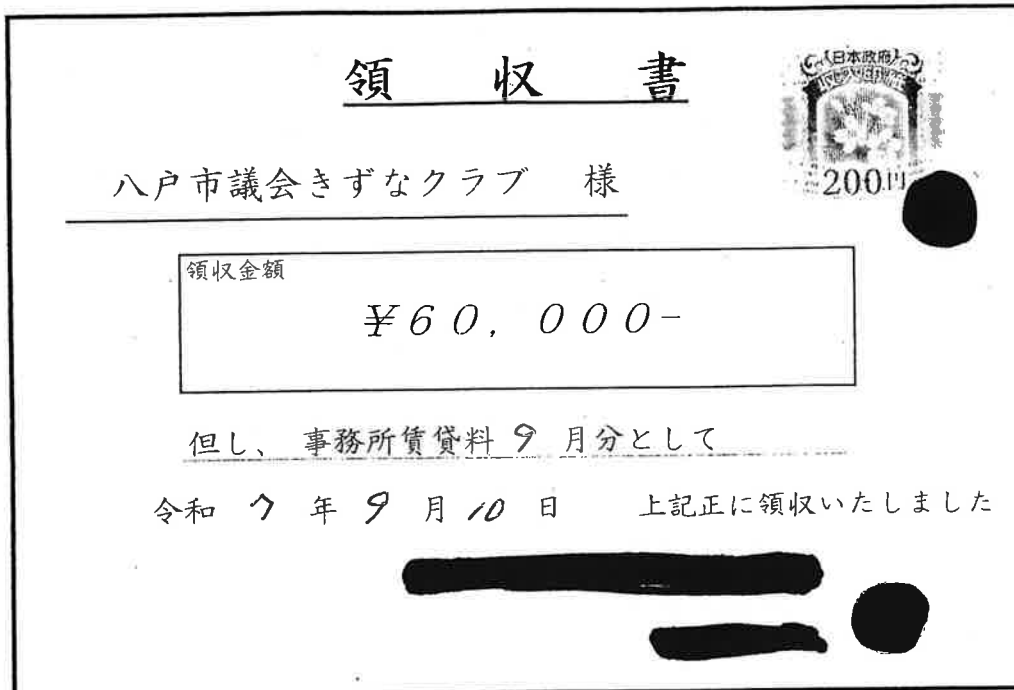 領収書
日本政府
200円
八戸市議会きずなクラブ 様
領収金額
¥60,000-
但し、事務所賃貸料 9 月分として
令和 7 年 9 月 10 日 上記正に領収いたしました